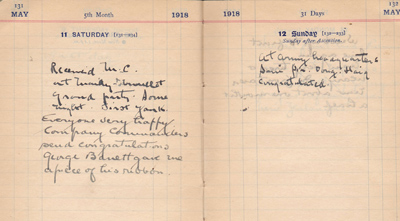 131
MAY
5th Month
1918
11 SATURDAY [131-234]
Received M.C.
at
ground party. Some
night. First Yank.
Everyone very happy.
Company Commanders
send congratulations
George Barrett gave me
a piece of his ribbon.
132
MAY
1918
31 Days
12 Sunday [132-233]
Sunday after Ascension
at army headquarters
Saw Doug. Haig
congratulated